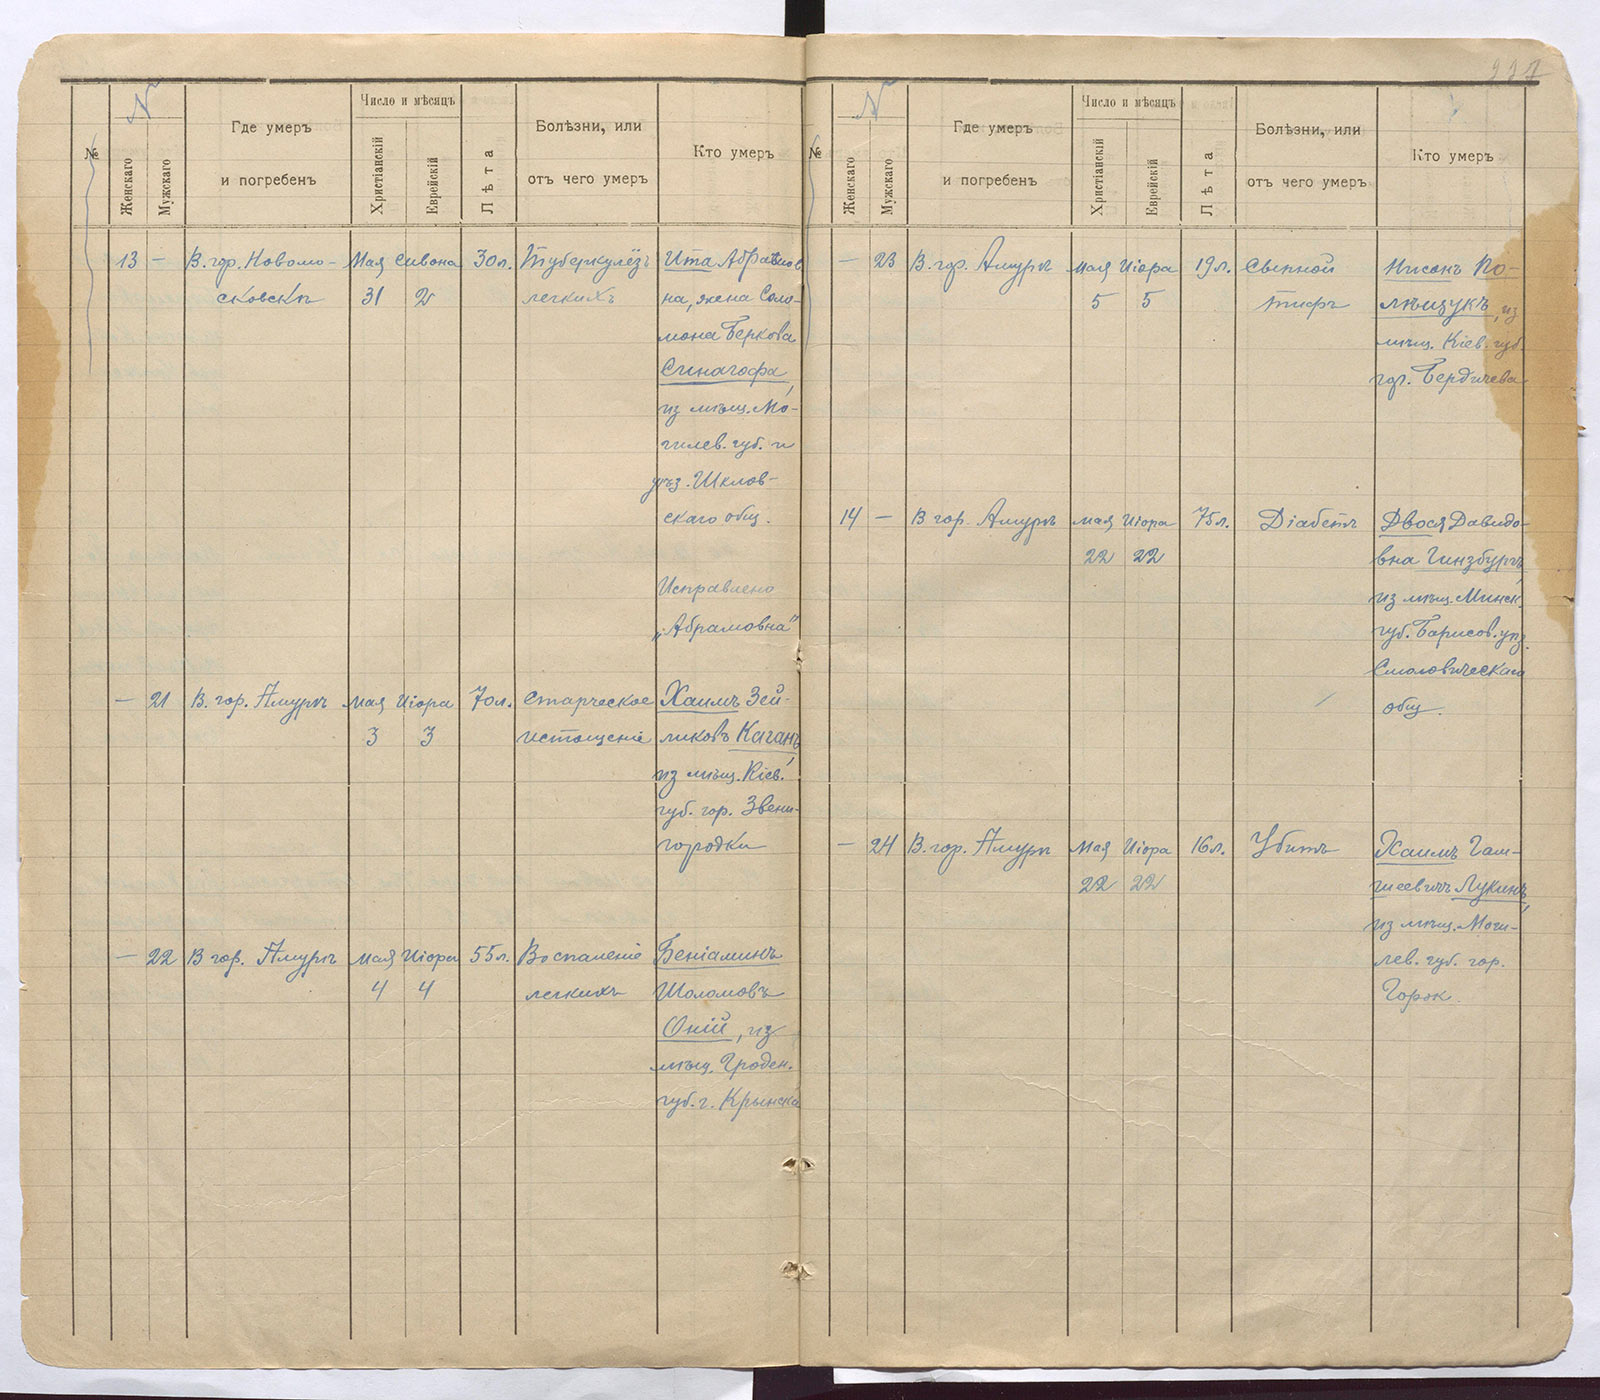 227
№
№
Женскаго
Мужскаго
Где умеръ
и погребенъ
Число и мѣсяцъ
Христіанскій
Еврейскій
Лѣта
Болѣзни, или
отъ чего умеръ
Кто умеръ
13 — В. гор. Новомо- Мая Сивона 30 л. Туберкулёзъ Ита Абрамов
сковскѣ 31 2 легкихъ на, жена Соло-
мона Беркова
Синагофа,
из мѣщ. Мо-
гилев. губ. и
уѣз. Шклов-
скаго общ.
Исправлено
„Абрамовна"
— 21 В. гор. Амурѣ Мая Иіора 70 л. Старческое Хаимъ Зей-
3 3 истощеніе ликовъ Каганъ,
из мѣщ. Кіев.
губ. гор. Звени-
городки
— 22 В гор. Амурѣ Мая Иіора 55 л. Воспаленіе Беніаминъ
4 4 легкихъ Шоломовъ
Оній, из
мѣщ. Гроден.
губ. г. Крынска
№
№
Женскаго
Мужскаго
Где умеръ
и погребенъ
Число и мѣсяцъ
Христіанскій
Еврейскій
Лѣта
Болѣзни, или
отъ чего умеръ
Кто умеръ
— 23 В. гор. Амурѣ Мая Иіора 19 л. Сыпной Нисонъ По-
5 5 тифъ лѣщукъ, из
мѣщ. Кіев. губ.
гор. Бердичева
14 — В гор. Амурѣ Мая Иіора 75 л. Діабетъ Двося Давидо-
22 22 вна Гинзбургъ,
из мѣщ. Минск.
губ. Барисов. уѣз.
Смоловическаго
общ.
— 24 В. гор. Амурѣ Мая Иіора 16 л. Убитъ Хаимъ Гам-
22 22 шеевичъ Лукинъ,
из мѣщ. Моги-
лев. губ. гор.
Горок.